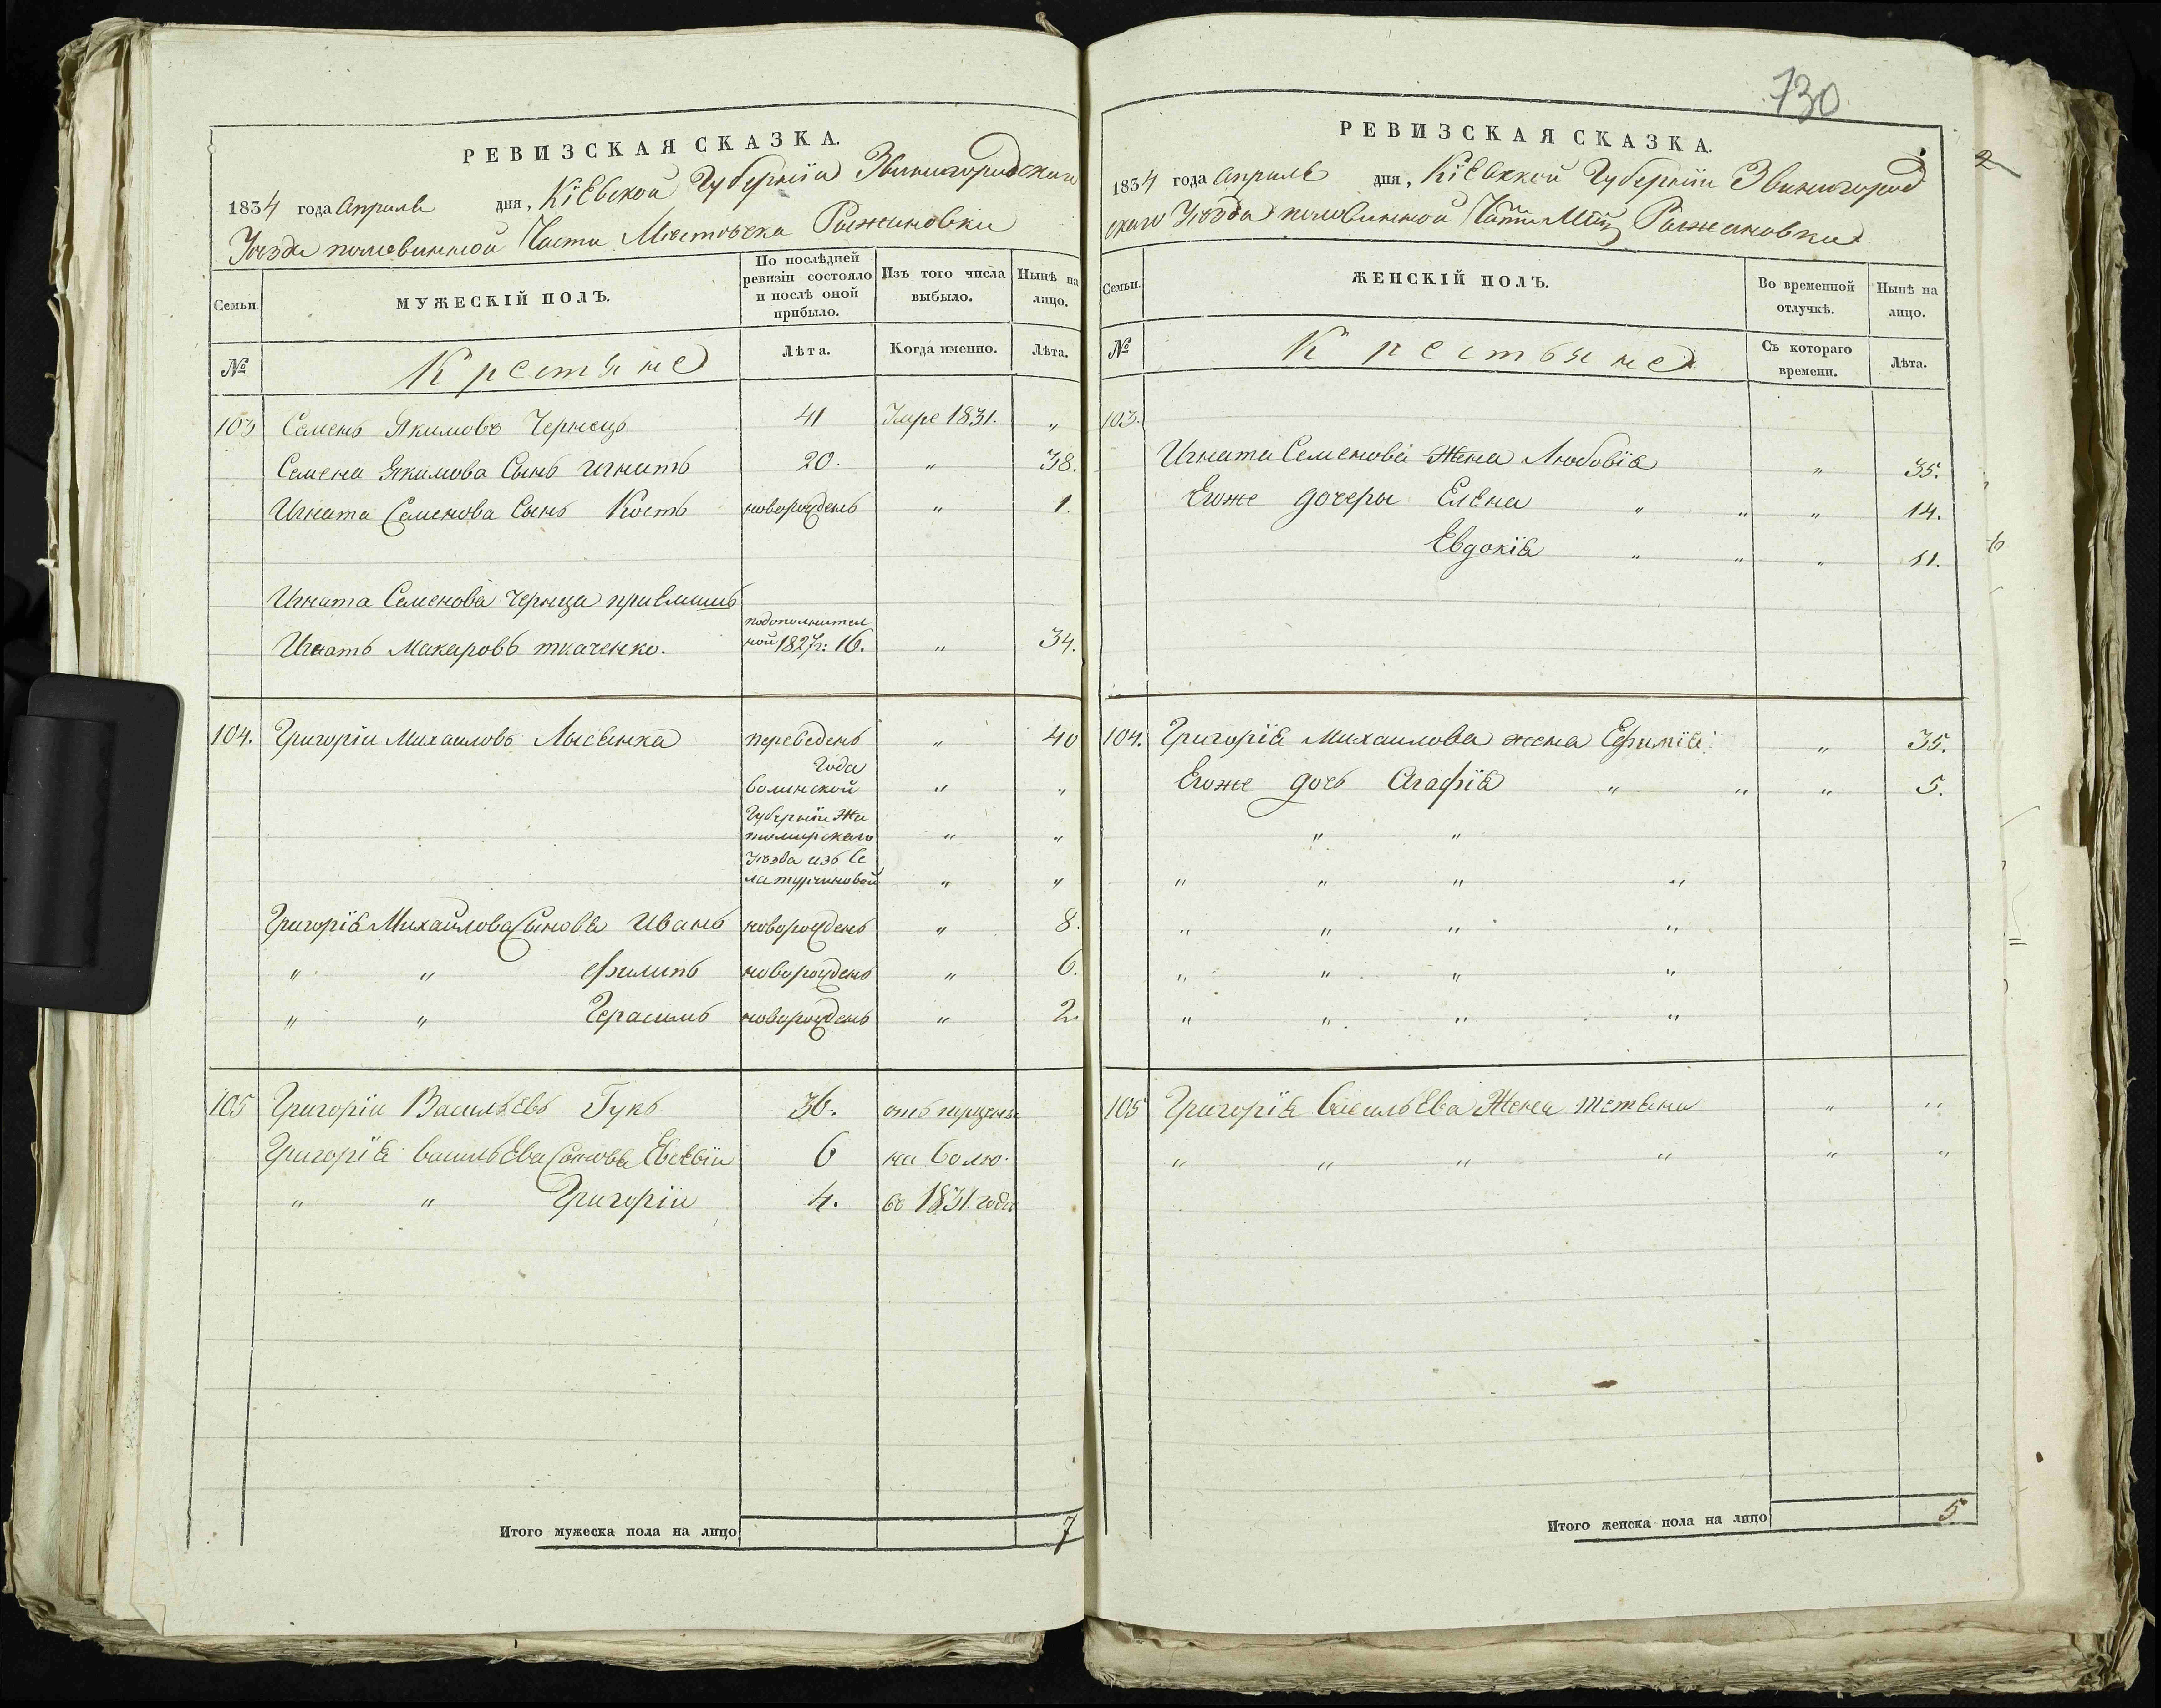 730
РЕВИЗСКАЯ СКАЗКА.
1834 года Апреля дня, Кіевской Губерніи Звинигородскаго
Уезда половинной Части Местечка Рыжановки
Семьи.
МУЖЕСКІЙ ПОЛЪ.
По послѣдней ревизіи состояло и послѣ оной прибыло.
Изъ того числа выбыло.
Нынѣ на лицо.
№
Крестяне
Лѣта.
Когда именно.
Лѣта.
103 Семенъ Якимовъ Чернецъ 41 Умре 1831. „
Семена Якимова Сынъ Игнатъ 20. „ 38.
Игната Семенова Сынъ Кость новорожденъ „ 1.
Игната Семенова Чернца приемышъ
подополнител
Игнатъ Макаровъ ткаченко. ной 1827г: 16. „ 34.
104. Григоріи Михаиловъ Лысенка переведенъ „ 40
Года
волинской „ „
Губерніи Жи
томирскаго „ „
Уезда изъ Се
ла турчиновой „ „
Григорія Михайлова Сыновя Иванъ новорожденъ „ 8.
„ „ Филипъ новорожденъ „ 6.
„ „ Герасимъ новорожденъ „ 2.
105 Григоріи Васильевъ Гукъ 36. отъпущены
Григорія васильева Сыновя Евсевіи 6 на волю.
„ „ Григоріи 4. въ 1831. годе
Итого мужеска пола на лицо 7
РЕВИЗСКАЯ СКАЗКА.
1834 года Апреля дня, Кіевской Губерніи Звинигород
скаго Уезда половинной Части Рыжановки
Семьи.
ЖЕНСКІЙ ПОЛЪ.
Во временной отлучкѣ.
Нынѣ на лицо.
№
Крестьяне
Съ котораго времени.
Лѣта.
103.
Игната Семенова Жена Любовія „ 35.
Егоже дочеры Елена „ „ „ 14.
Евдокія „ „ „ 11.
104. Григорія Михаилова жена Ефимія „ 35.
Егоже дочь Агафія „ „ „ 5.
„ „
„ „ „ „
„ „ „ „
„ „ „ „
„ „ „ „
105 Григорія Васильева Жена Тетяна „ „
„ „ „ „ „ „
Итого женска пола на лицо 5